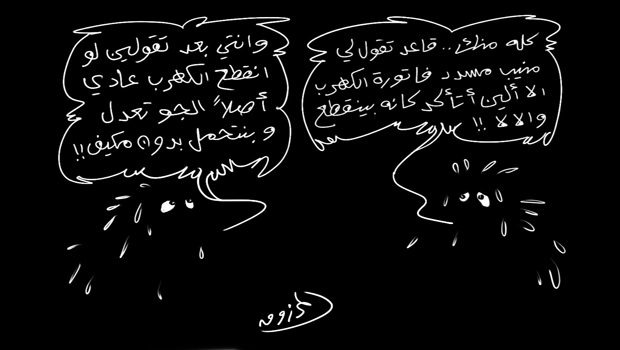 كله منك.. قاعد تقول لي
منيب مسدد فاتورة الكهرب
الا ألين أتأكد كانه بينقطع
والا لا !!
وانتي بعد تقولين لو
انقطع الكهرب عادي
أصلاً الجو تعدل
وبنتحمل بدون مكيف!!